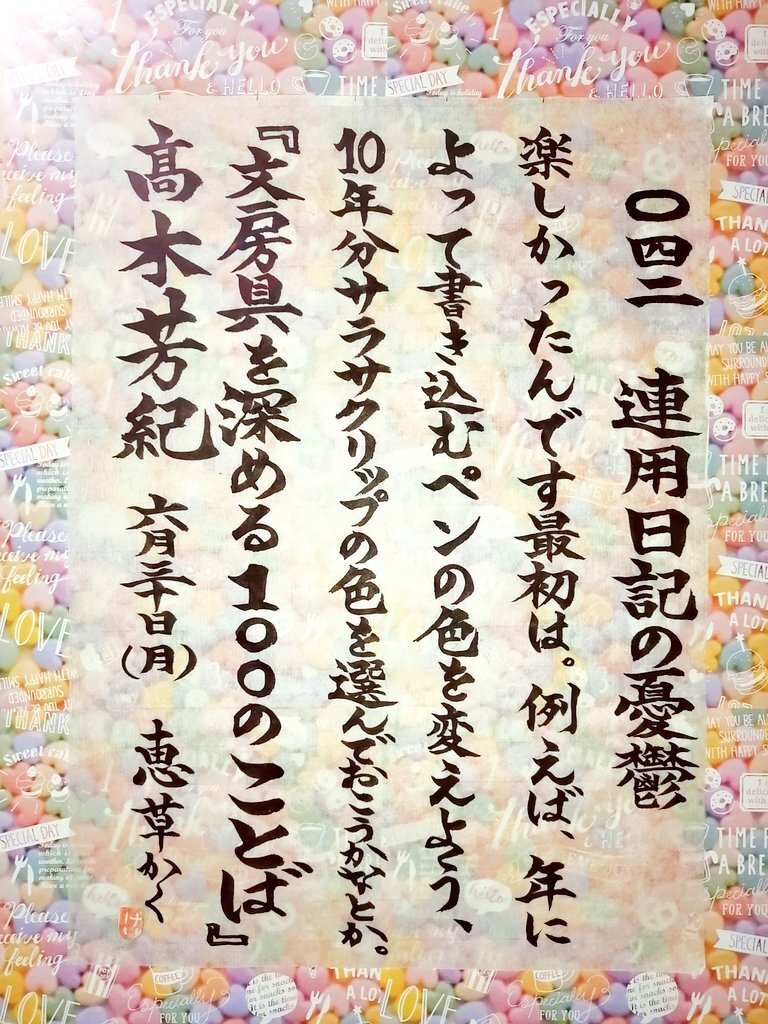 〇四二 連用日記の憂鬱
楽しかったんです最初は。例えば、年に
よって書き込むペンの色を変えよう、
10年分サラサクリップの色を選んでおこうかなとか。
『文房具を深める100のことば』
高木芳紀 六月三十日(月) 恵草かく
ESPECIALLY
For you
Thank you
& HELLO
SPECIAL DAY
Today is holiday
TIME
Please
receive my
feeling
LOVE
WITH HAPPY SMILE
SURROUNDED
THANK
Sweet cake
SPECIAL DAY
THANK
A LOT
TIME
A BRE
Especially
FOR YOU
MAY YOU BE AL
SURROUND
WITH HAPPY S
COFFEE
Especially
FOR YOU
THANK
A LOT
LOVE